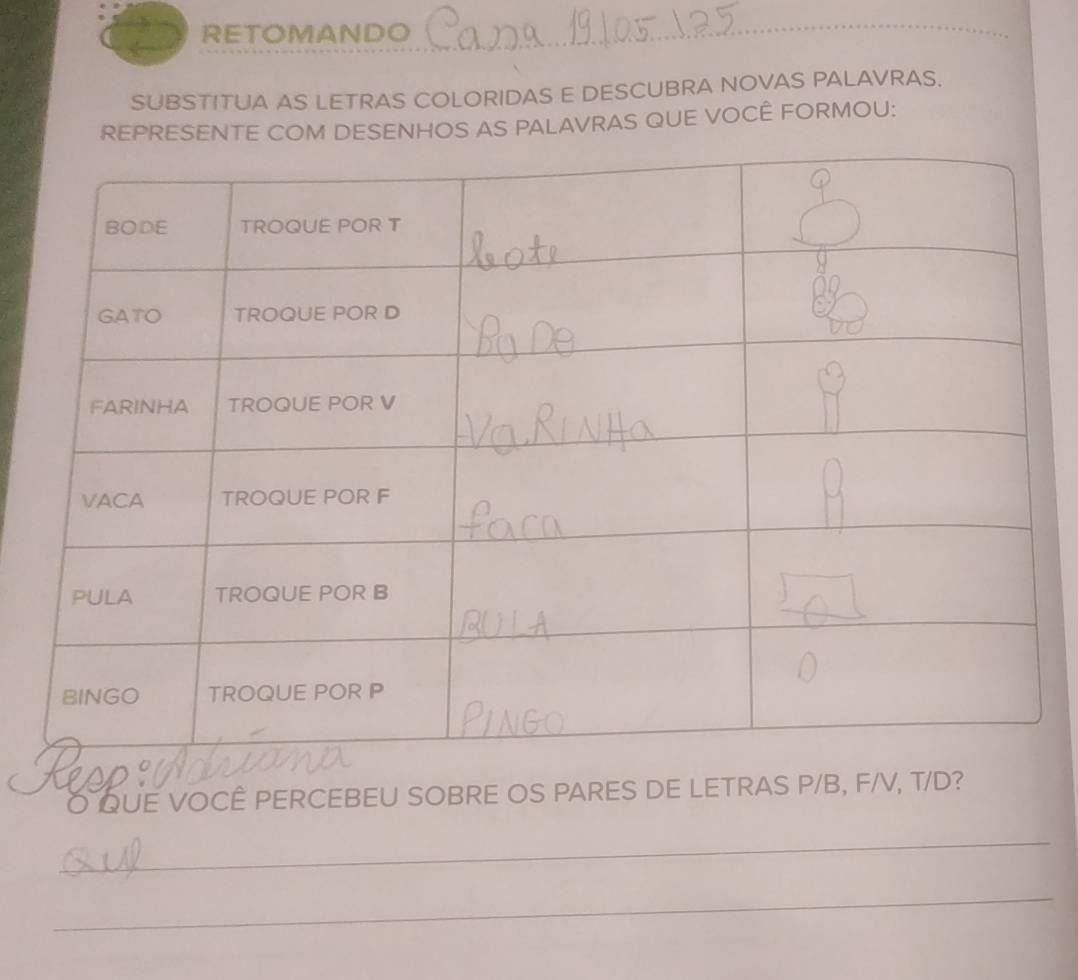 RETOMANDO Casa 19/05/25
SUBSTITUA AS LETRAS COLORIDAS E DESCUBRA NOVAS PALAVRAS.
REPRESENTE COM DESENHOS AS PALAVRAS QUE VOCÊ FORMOU:
BODE TROQUE POR T bote
GATO TROQUE POR D GaDe
FARINHA TROQUE POR V VaRINHa
VACA TROQUE POR F faca
PULA TROQUE POR B BULA
BINGO TROQUE POR P PINGO
Resp: Adriana
O QUE VOCÊ PERCEBEU SOBRE OS PARES DE LETRAS P/B, F/V, T/D?
Que